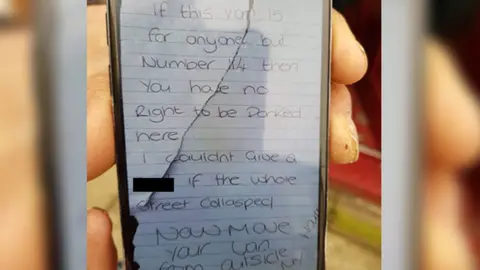 If this van is
for anyone but
Number 14 then
You have no
Right to be Parked
here
I couldnt Give a
if the whole
Street Collasped
Now Move
Your Van
from outside